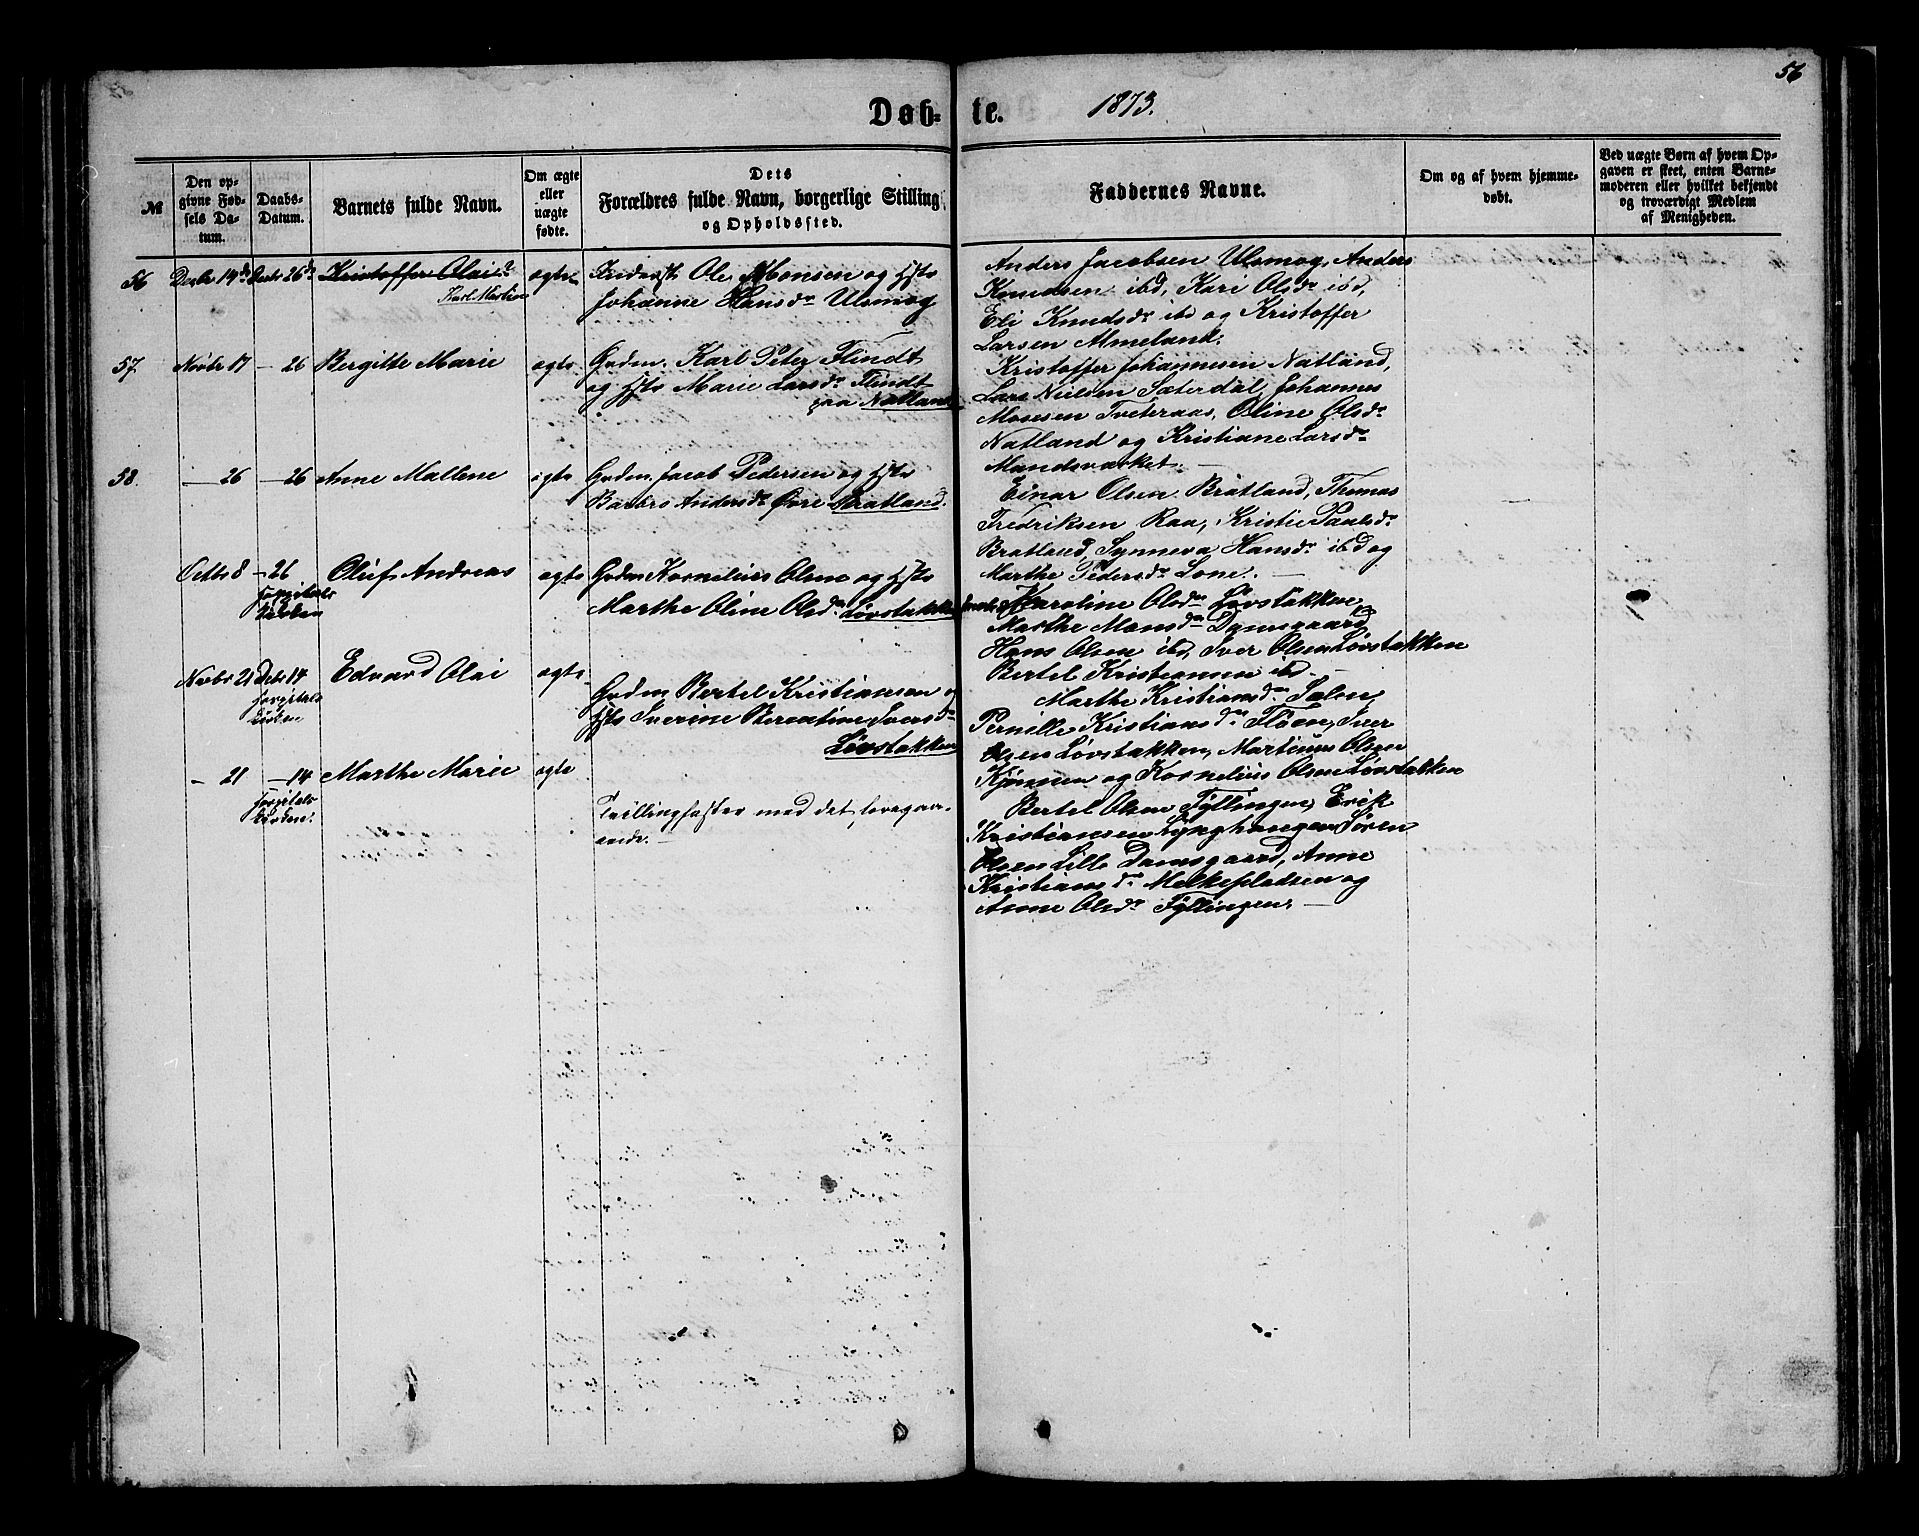 56
Døb= te. 1873.
№
Den op-
givne Fød-
sels Da-
tum.
Daabs-
Datum.
Barnets fulde Navn.
Om ægte
eller
uægte
fødte.
Dets
Forældres fulde Navn, borgerlige Stilling
og Opholdssted.
Faddernes Navne.
Om og af hvem hjemme-
døbt.
Ved uægte Børn af hvem Op-
gaven er skeet, enten Barne-
moderen eller hvilket bekjendt
og troværdigt Medlem
af Menigheden.
56 Decbr 14de Decbr 26de Kristoffer Olai
Karl Martin
ægte
Inderst Ole Monsen og Hst
Johanne Hansdr Ulsmog
Anders Jacobsen Ulsmog, Anders
Knudsen ibd, Kari Olsdr ibd,
Eli Knudsdr ibd og Kristoffer
Larsen Almeland.
57. Novbr 17 — 26 Bergitte Marie ægte
Grdm. Karl Peter Flindt
og Hst Marie Larsdr Flindt
paa Natland
Kristoffer Johannesen Natland,
Lars Nielsen Sæterdal, Johannes
Monsen Tveteraas, Oline Olsdr
Natland og Kristiane Larsdr
Mandsværket. —
58. — 26 — 26 Anne Mallene ægte
Grdm. Jacob Pedersen og Hst
Barbro Andersdr Øvre Bratland.
Einar Olsen Bratland, Thomas
Fredriksen Raa, Kristie Paulsdr
Bratland, Synneva Hansdr ibd og
Marthe Pedersdr Lone. —
Octbr 8 — 26
Hospitals
kirken
Oluf Andreas ægte
Grdm Kornelius Olsen og Hst
Marthe Oline Olsdr Løvstakken
Karoline Olsdr Løvstakken
Marthe Monsdr Damsgaard
Hans Olsen ibd, Iver Olsen Løvstakken
Bertel Kristiansen ibd. —
Novbr 21 Decbr 14
Hospitals
kirken
Edvard Olai ægte
Grdm Bertel Kristiansen og
Hst Iverine Berentine Iversdr
Løvstakken
Marthe Kristiansdr Sælen,
Pernille Kristiansdr Fløen, Iver
Olsen Løvstakken, Martinus Olsen
og Kornelius Olsen Løvstakken
— 21 — 14
Hospitals
kirken.
Marthe Marie ægte
Tvillingsøster med det foregaa-
ende. —
Bertel Olsen Fyllingen, Erik
Kristiansen Lynghaugen, Søren
Olsen Lille Damsgaard, Anne
Kristiansdr Melkepladsen og
Anne Olsdr Fyllingen. —